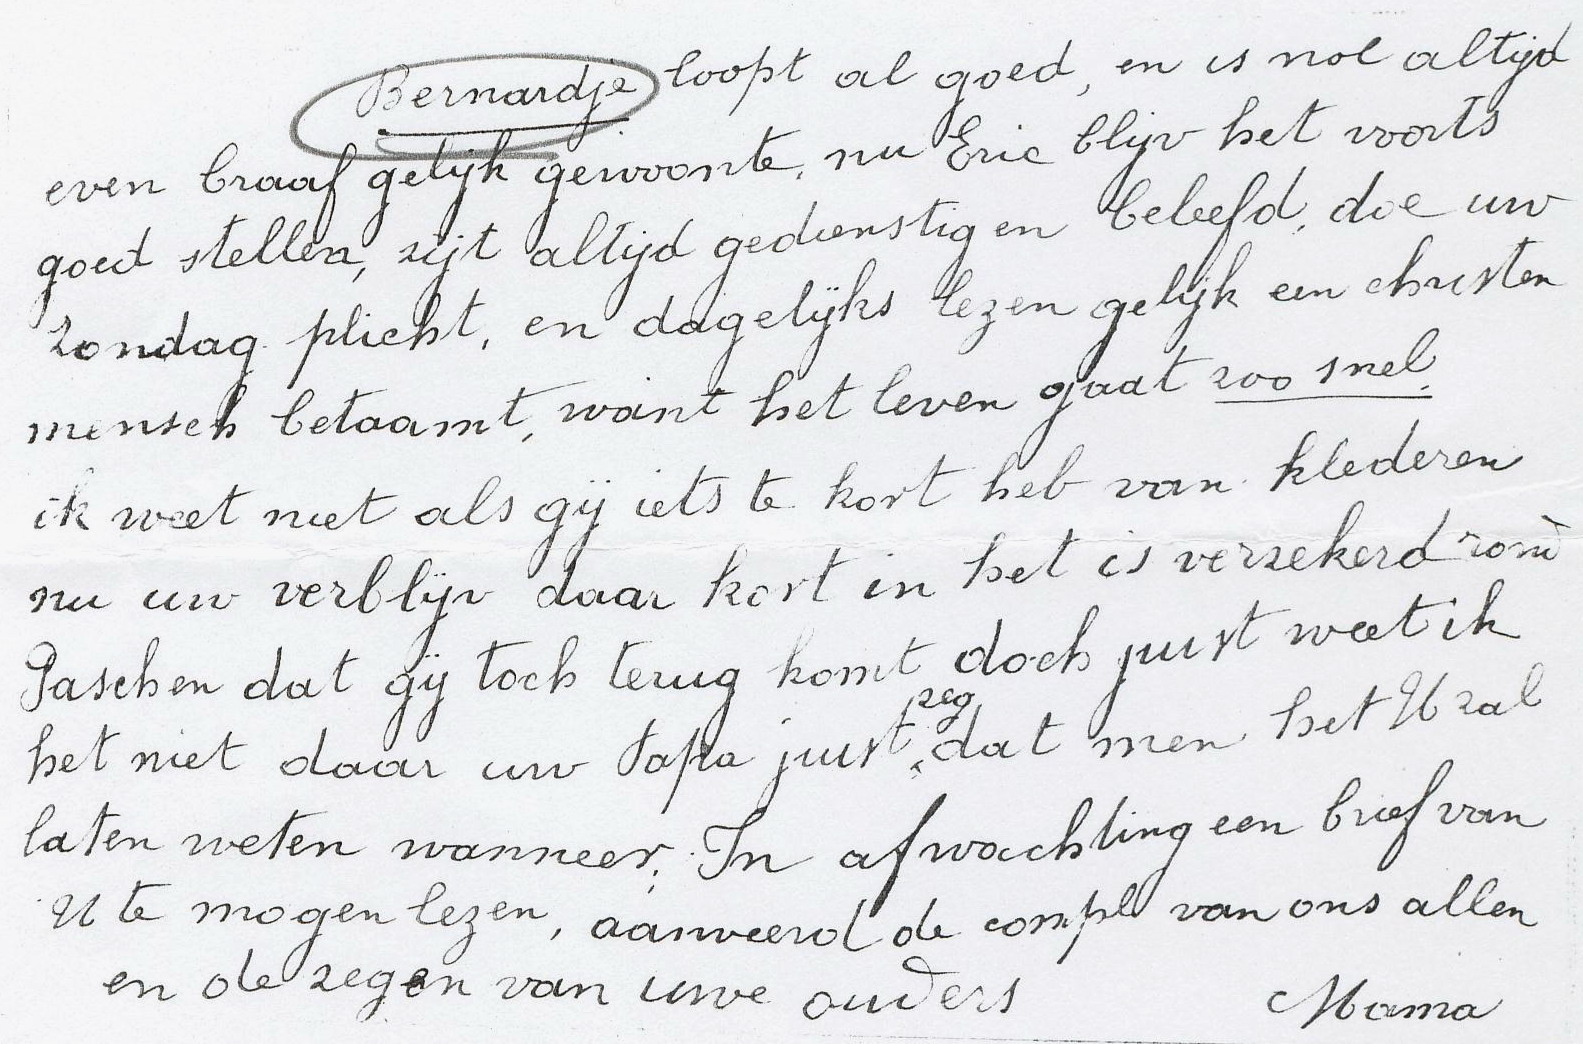 Bernardje loopt al goed, en is nol altijd
even braaf gelijk gewoonte, nu Eric blijv het voorts
goed stellen, zijt altijd gedienstig en beleefd, doe uw
zondag plicht, en dagelijks lezen gelijk een christen
mensch betaamt, want het leven gaat zoo snel.
ik weet niet als gij iets te kort heb van klederen
nu uw verblijv daar kort in het is verzekerd rond
Paschen dat gij toch terug komt doch just weet ik
het niet daar uw Papa just zeg dat men het U zal
laten weten wanneer. In afwachting een brief van
U te mogen lezen, aanveerd de compl van ons allen
en de zegen van uwe ouders Mama